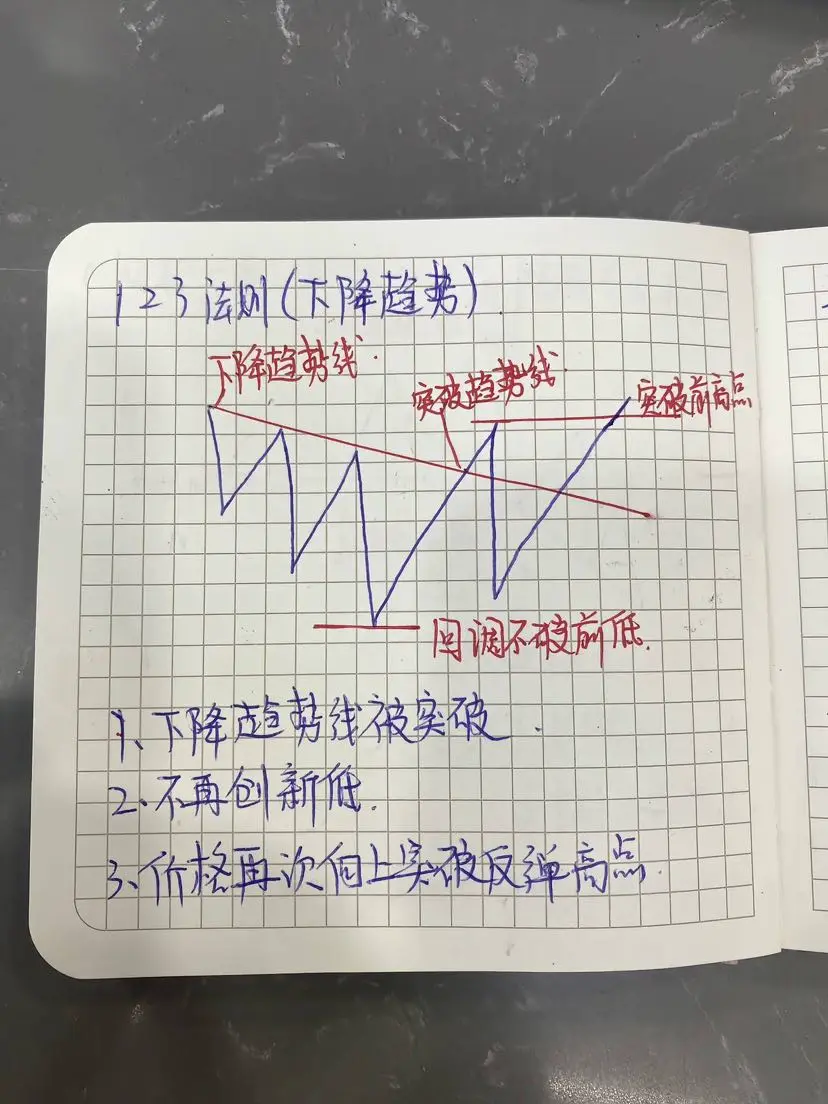 123法则(下降趋势)
下降趋势线
突破趋势线
突破前高点
回调不破前低
1、下降趋势线被突破.
2、不再创新低.
3、价格再次向上突破反弹高点